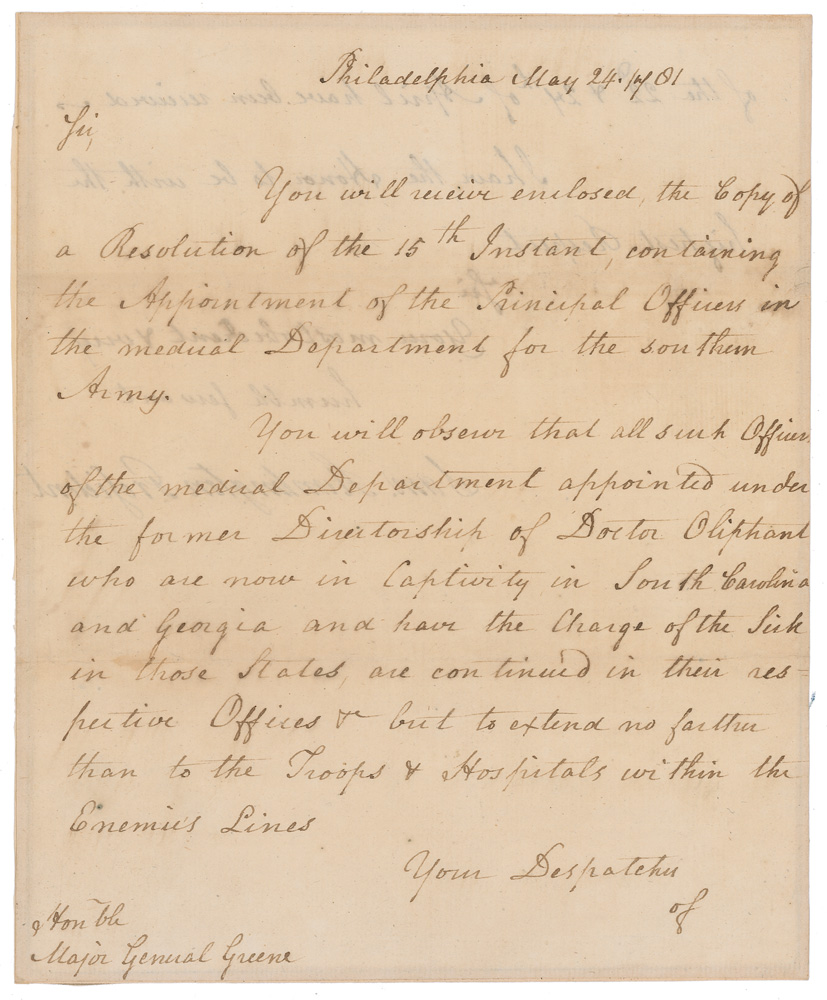 Philadelphia May 24. 1781
Sir,
You will receive enclosed, the Copy of
a Resolution of the 15th Instant, containing
the Appointment of the Principal Officers in
the medical Department for the southern
Army.
You will observe that all such Officers
of the medical Department appointed under
the former Directorship of Doctor Oliphant
who are now in Captivity in South Carolina
and Georgia and have the Charge of the Sick
in those States, are continued in their res-
pective Offices &c but to extend no farther
than to the Troops & Hospitals within the
Enemies Lines
Your Despatches
of
Honble
Major General Greene